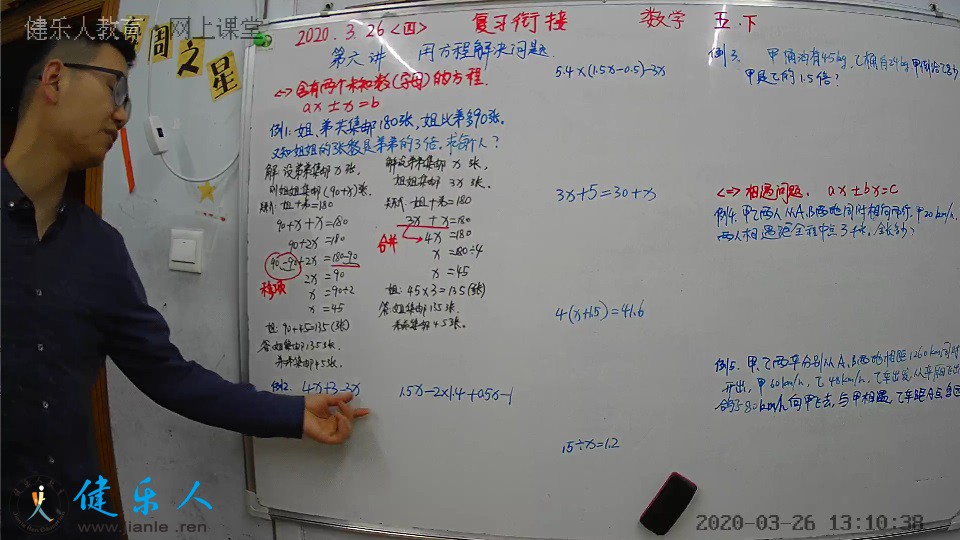 健乐人教育 网上课堂
周之星
2020.3.26<四> 复习衔接 数学 五.下
第六讲 用方程解决问题
<一>含有两个未知数(字母)的方程
ax±x=b
例1:姐、弟共集邮180张,姐比弟多90张。
又知姐姐的张数是弟弟的3倍。求每个人?
解 设弟弟集邮x张,
则姐姐集邮(90+x)张.
姐+弟=180
90+x+x=180
90+2x=180
90-90+2x=180-90
移项
2x=90
x=90÷2
x=45
姐:90+45=135(张)
答:姐集邮135张,
弟弟集邮45张.
解设弟弟集邮x张,
姐姐集邮3x张.
姐+弟=180
3x+x=180
合并
4x=180
x=180÷4
x=45
姐:45×3=135(张)
答:姐集邮135张
弟弟集邮45张.
例2. 4x+3-3x
1.5x-2×1.4+0.5x-1
5.4×(1.5x-0.5)-3x
3x+5=30+x
4(x+1.5)=41.6
15÷x=1.2
例3.
甲是乙的1.5倍?
<二>相遇问题. ax±bx=c
例4.甲乙两人从A、B两地同时相向而行,甲20km/h,
两人相遇距全程中点3千米。全长多少?
例5.甲、乙两车分别从A、B两地相距1260km同时
开出,甲60km/h,乙48km/h,
健乐人
www.jianle.ren
2020-03-26 13:10:38